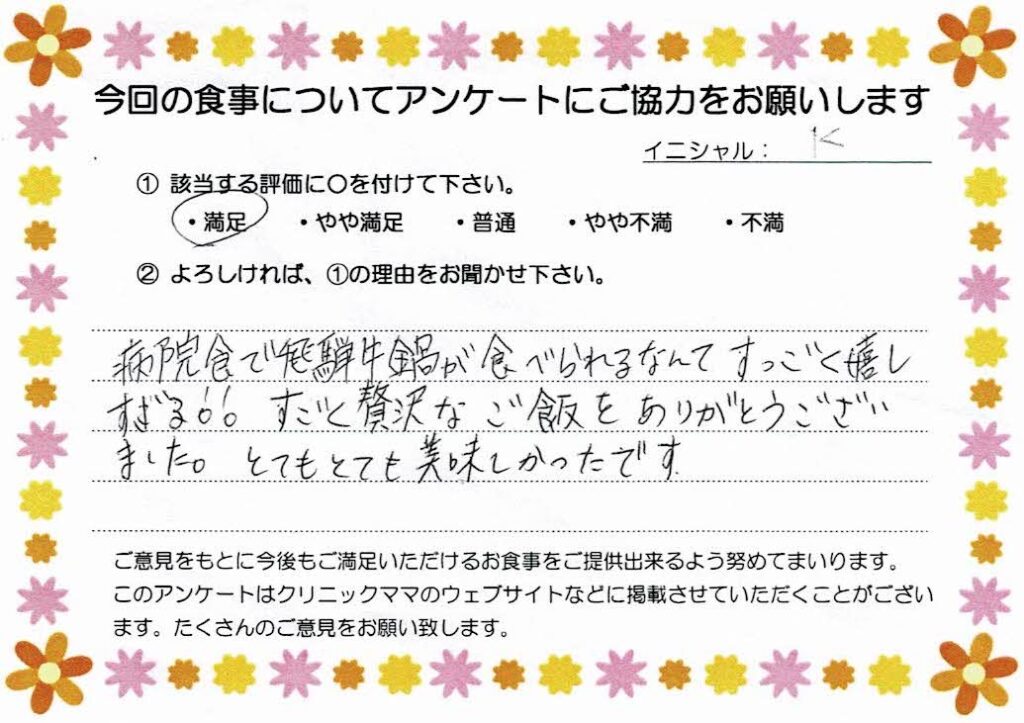 今回の食事についてアンケートにご協力をお願いします
イニシャル： K
① 該当する評価に〇を付けて下さい。
・満足 ・やや満足 ・普通 ・やや不満 ・不満
② よろしければ、①の理由をお聞かせ下さい。
病院食で飛騨牛鍋が食べられるなんて すっごく嬉し
すぎる!! すごく贅沢な ご飯を ありがとうござい
ました。 とてもとても美味しかったです
ご意見をもとに今後もご満足いただけるお食事をご提供出来るよう努めてまいります。
このアンケートはクリニックママのウェブサイトなどに掲載させていただくことがござい
ます。たくさんのご意見をお願い致します。